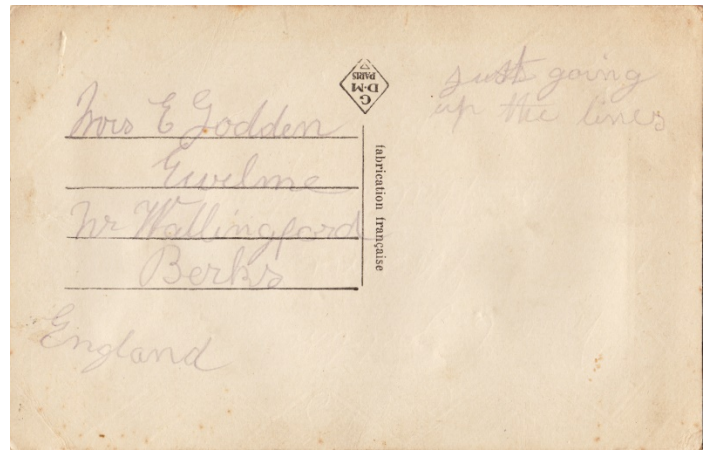 Mrs E Godden
Ewelme
Nr Wallingford
Berks
England
G
D·M
PARIS
fabrication française
just going
up the lines